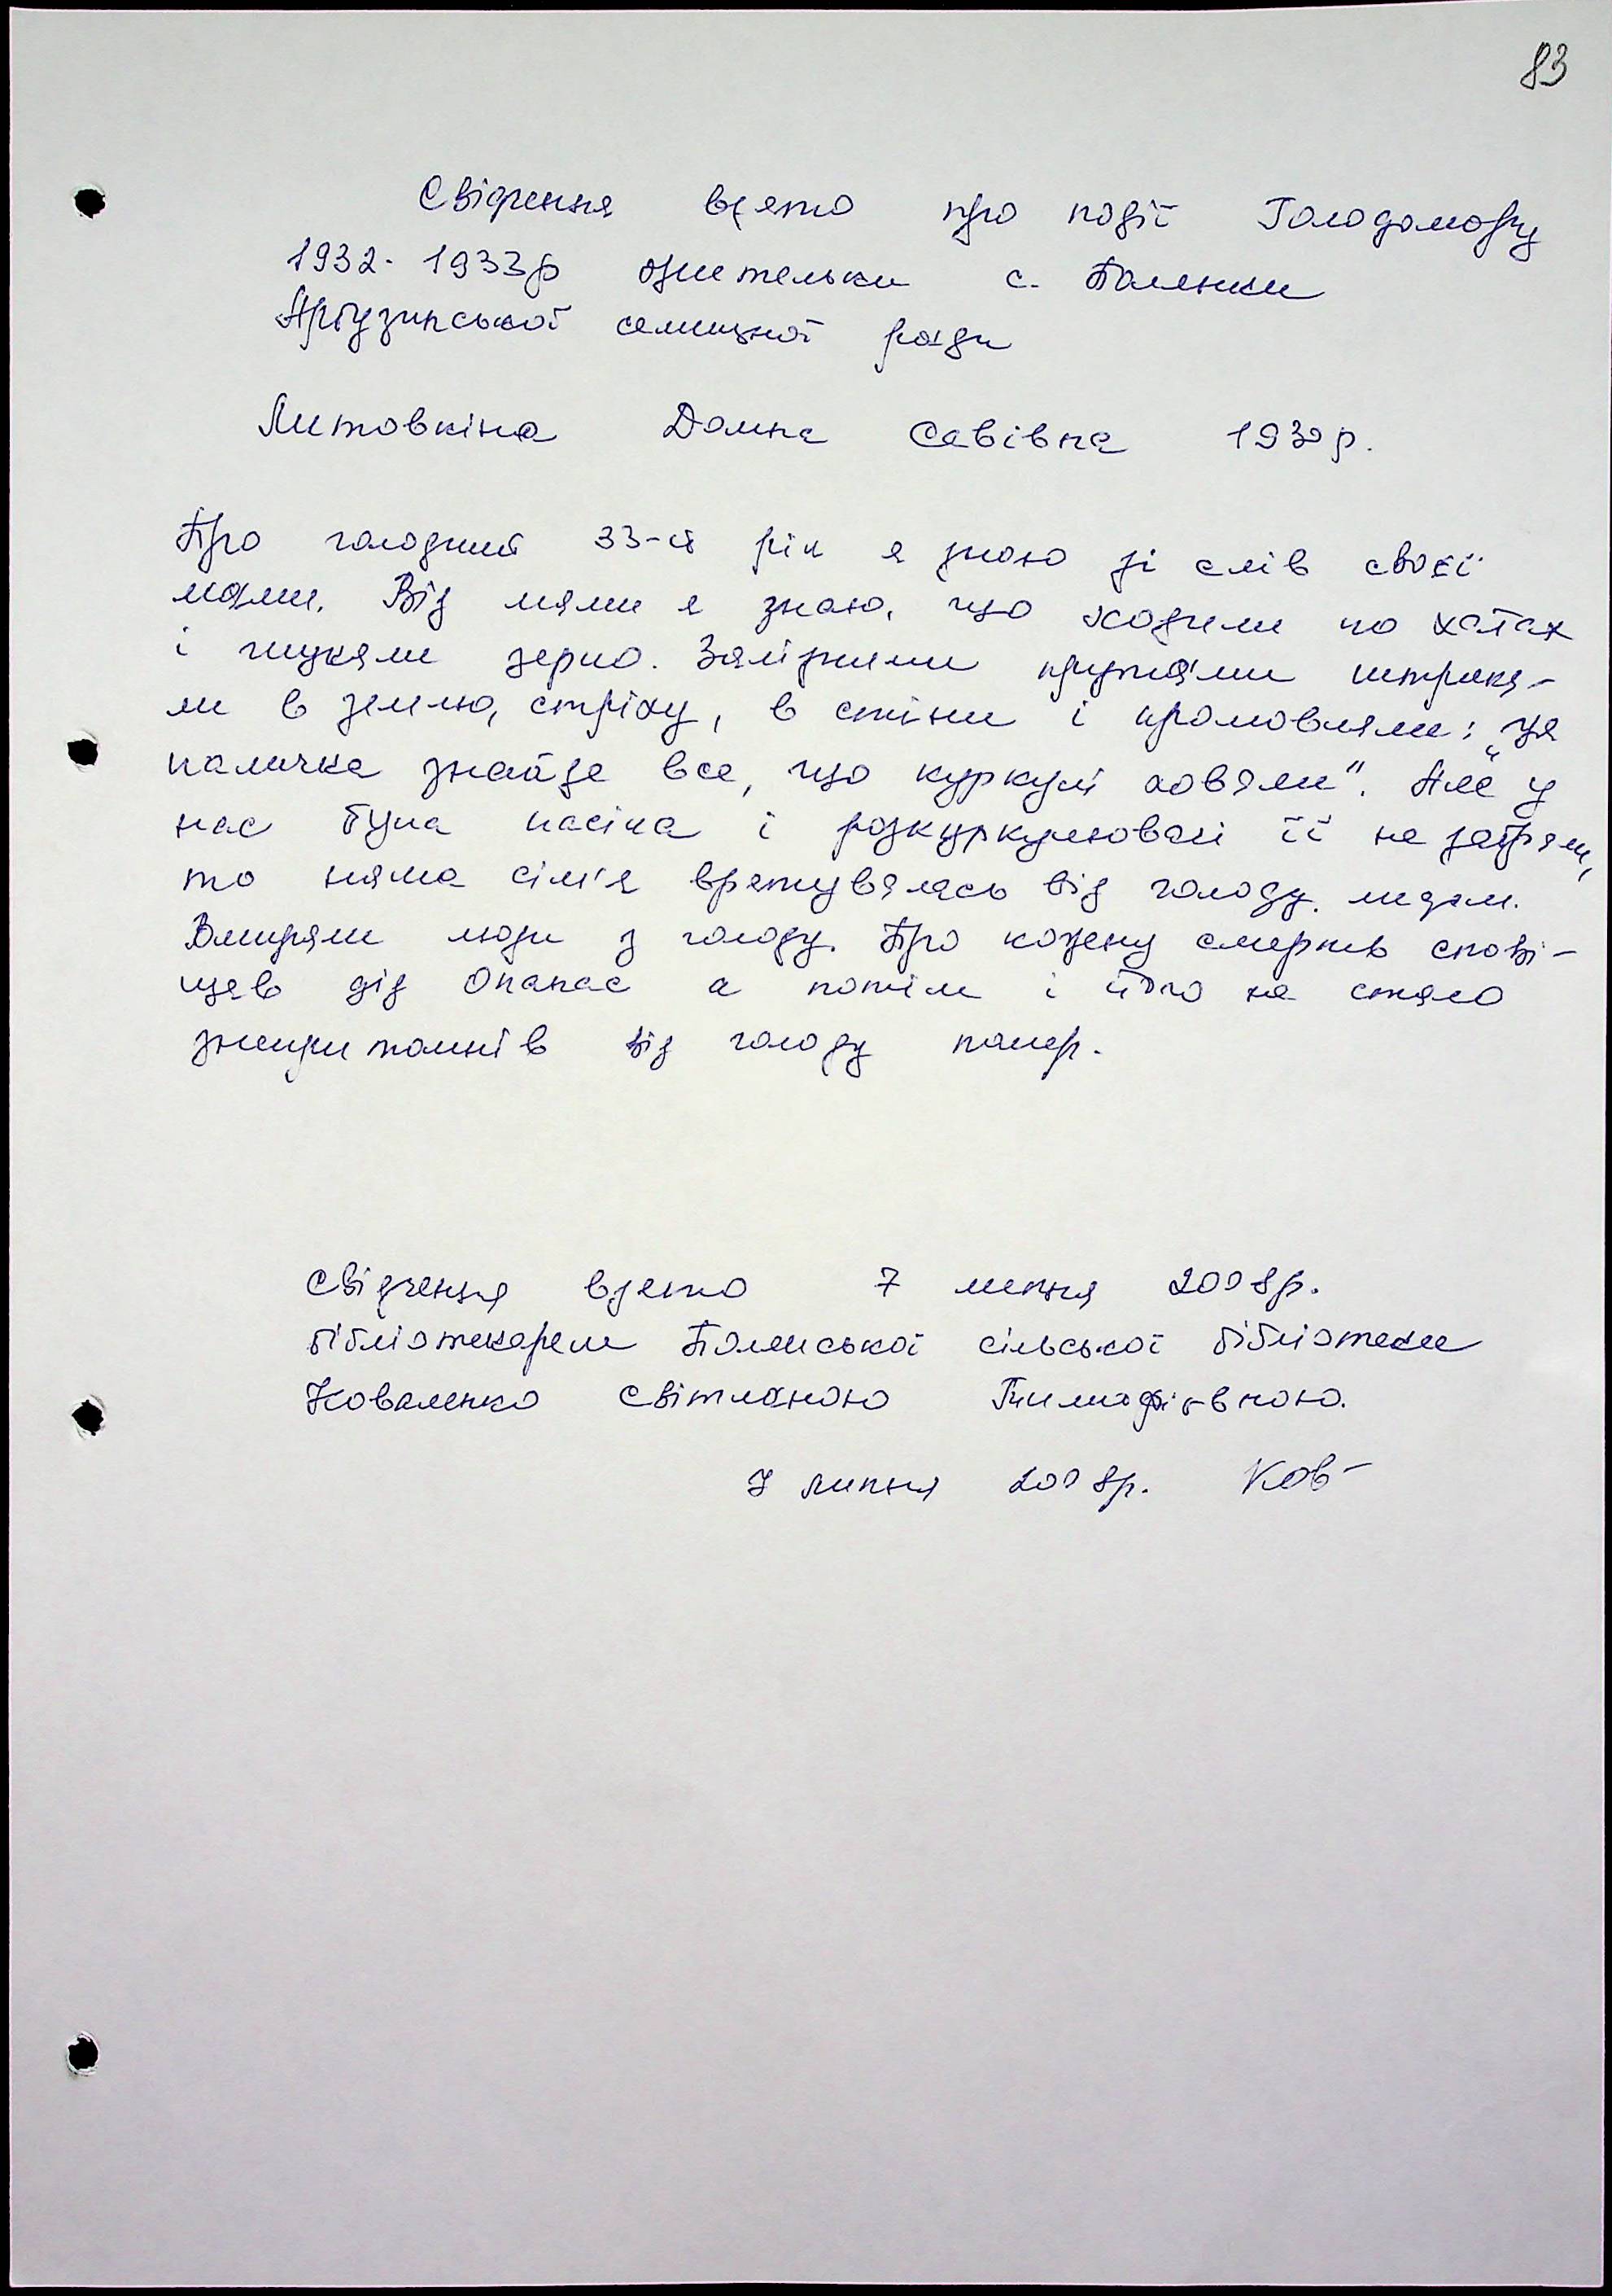 83
Свідчення взято про події Голодомору
1932-1933р жительки с. Полянки
Арбузинської селищної ради
Литовкіна Домна Савівна 1930р.
Про голодний 33-й рік я знаю зі слів своєї
мами. Від мами я знаю, що ходили по хатах
і шукали зерно. Залізними прутами штрика-
ли в землю, стріху, в стіни і промовляли: „Ця
паличка знайде все, що куркулі ховали". Але у
нас була пасіка і розкуркулювачі її не забрали,
то наша сім'я врятувалась від голоду. медом.
Вмирали люди з голоду. Про кожену смерть спові-
щав дід Опанас а потім і його не стало
знепритомнів від голоду помер.
Свідчення взято 7 липня 2008р.
бібліотекарем Полянської сільської бібліотеки
Коваленко Світланою Тимофіївною.
7 липня 2008р. Ков-